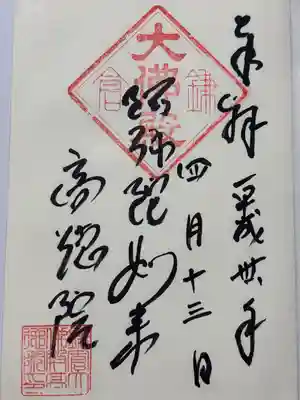 奉拝 平成丗年
四月十三日
阿弥陀如来
高徳院
大佛殿
鎌倉